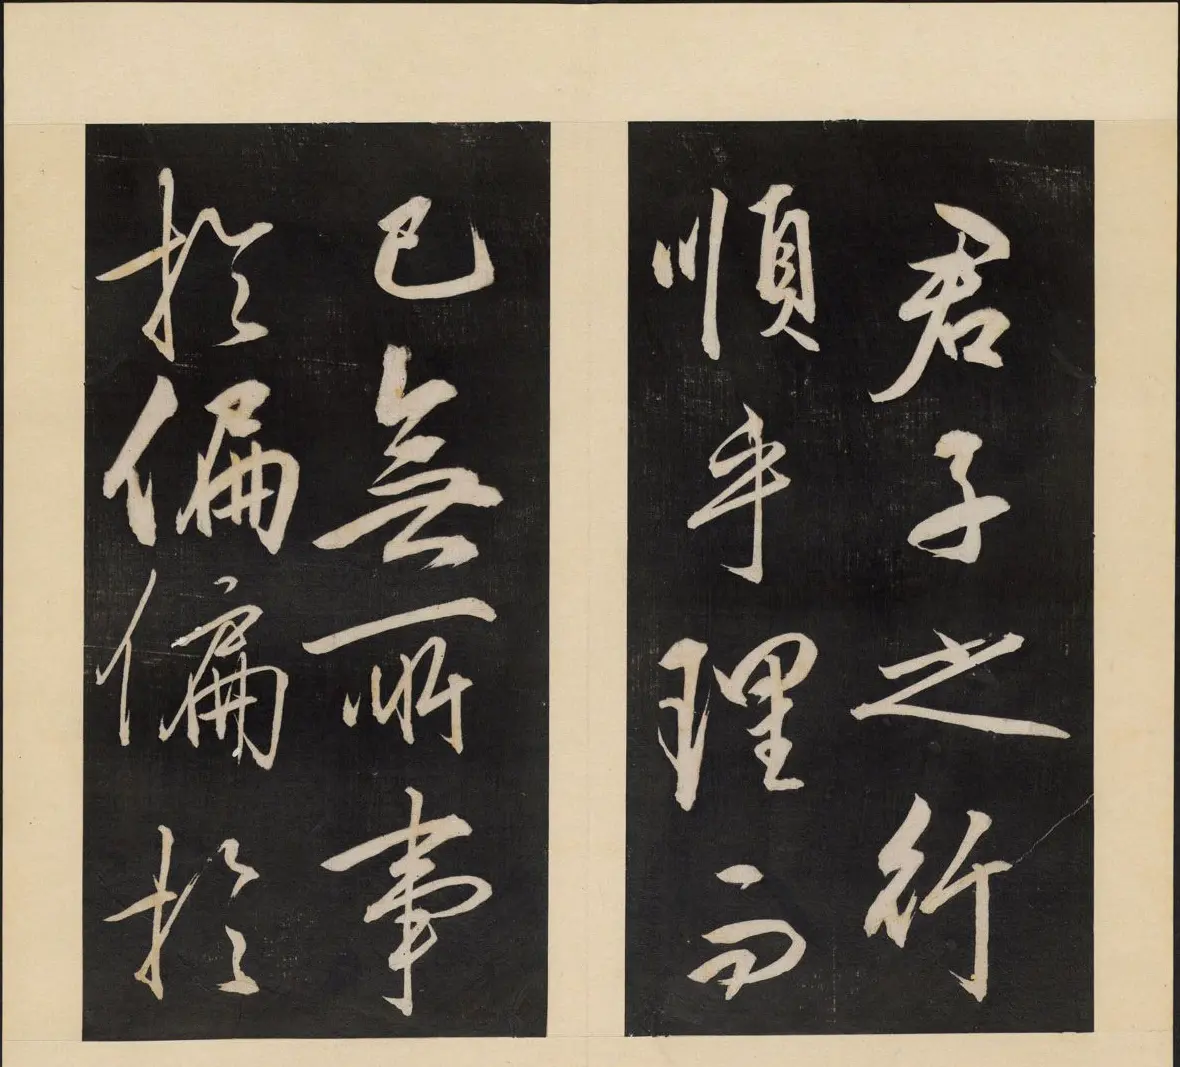 君子之行
順乎理而
已無所事
於偏偏於